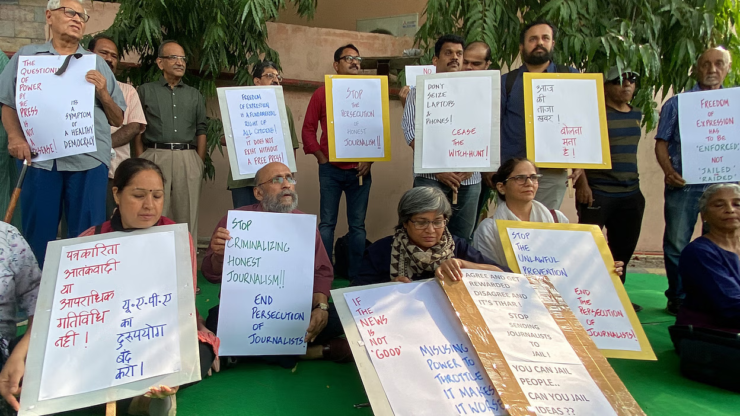 THE
QUESTIONING
OF POWER
BY THE
PRESS
IS NOT
A DISEASE!
ITS A
SYMPTOM OF
A HEALTHY
DEMOCRACY
FREEDOM OF EXPRESSION
IS A FUNDAMENTAL
RIGHT OF ALL
CITIZENS!
IT DOES NOT
EXIST WITHOUT
A FREE PRESS!
STOP
THE
PERSECUTION
OF HONEST
JOURNALISM!
NO
DON'T
SEIZE
LAPTOPS
& PHONES!
CEASE THE
WITCH-HUNT!
आज
की
ताज़ा
खबर!
बोलना
मना है!
FREEDOM OF
EXPRESSION
HAS TO
BE
'ENFORCED'
NOT
'JAILED'/
'RAIDED'
पत्रकारिता
आतंकवादी
या
आपराधिक
गतिविधि
नहीं!
यू॰ए॰पी॰ए
का
दुरुपयोग
बंद
करो!
STOP
CRIMINALIZING
HONEST
JOURNALISM!!
END
PERSECUTION
OF
JOURNALISTS!
IF THE
NEWS
IS
NOT
'GOOD'
MISUSING
POWER TO
THROTTLE
IT MAKES
IT WORSE
AGREE AND GET
REWARDED
DISAGREE AND
IT'S TIHAR!
STOP
SENDING
JOURNALISTS
TO
JAIL!
YOU CAN JAIL
PEOPLE..
CAN YOU JAIL
IDEAS??
STOP
THE
UNLAWFUL
PREVENTION
END THE
PERSECUTION
OF
JOURNALISTS!